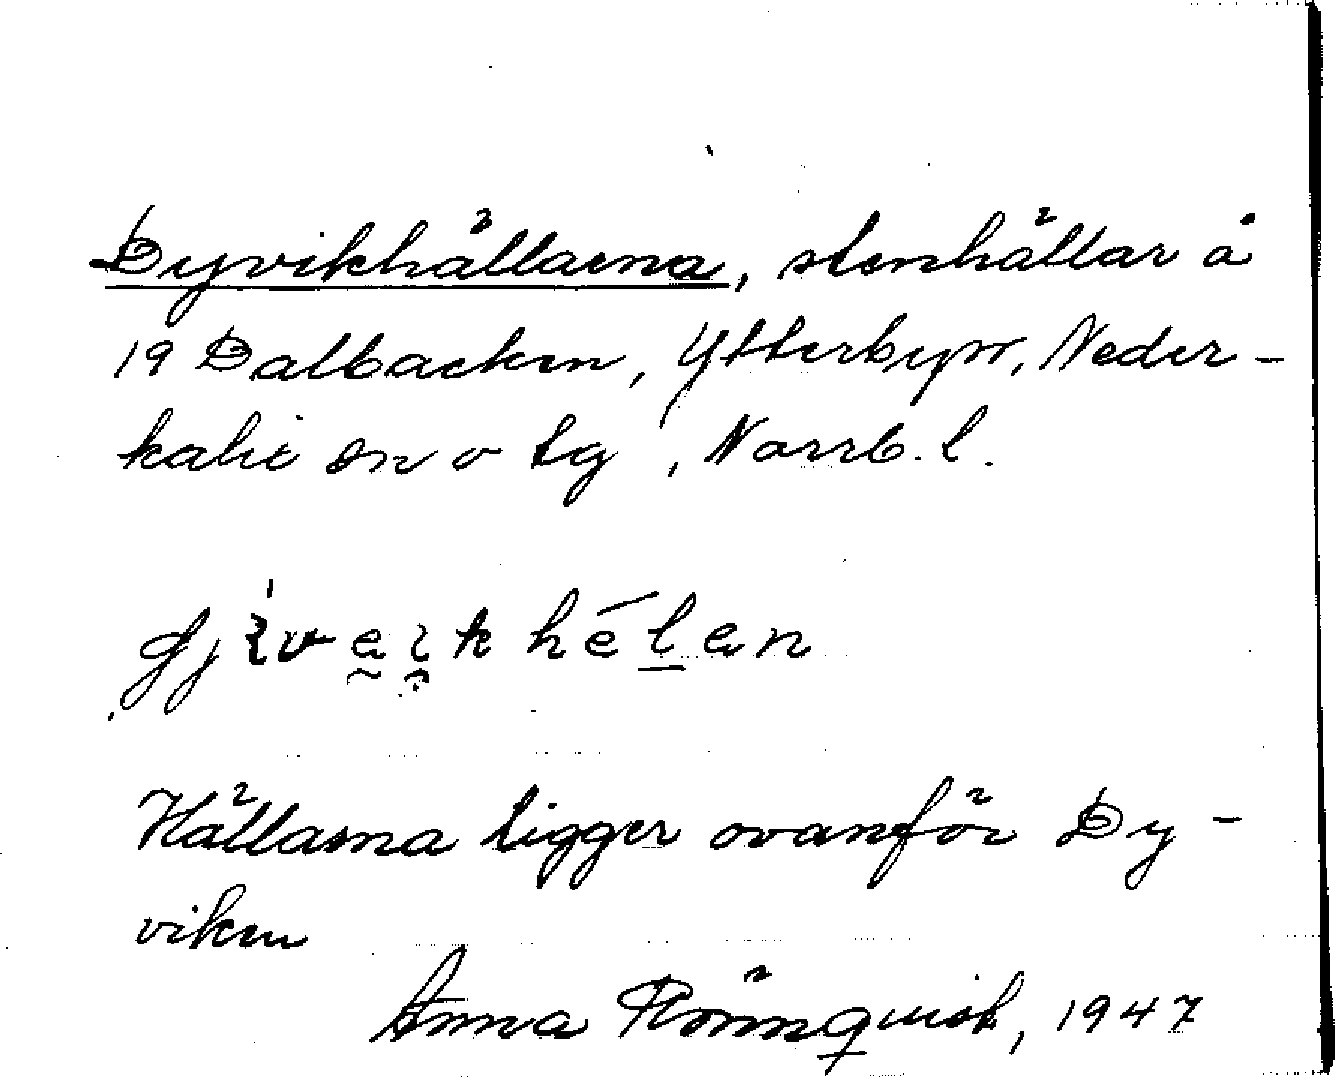 Dyvikhällarna, stenhällar å
19 Dalbacken, Ytterbyn, Neder-
kalix sn o tg, Norrb. l.
Hällarna ligger ovanför Dy-
viken
Anna Rönnqvist, 1947